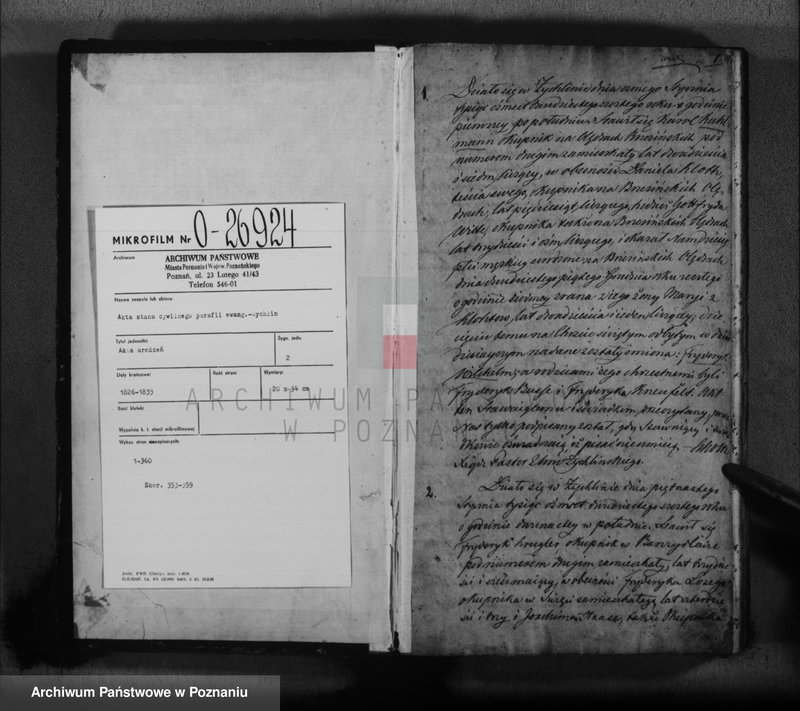 MIKROFILM Nr 0-26924
Archiwum
ARCHIWUM PAŃSTWOWE
Miasta Poznania i Wojew. Poznańskiego
Poznań, ul. 23 Lutego 41/43
Telefon 546-01
Nazwa zespołu lub zbioru:
Akta stanu cywilnego parafii ewang. ychlin
Tytuł jednostki:
Akta urodzeń
Sygn. jedn.
2
Daty krańcowe:
1826-1835
Ilość stron:
Wymiary:
20 x 34 cm
Ilość klatek:
Wypełnia k. t. stacji mikrofilmowej
Wykaz stron
1-360
Skor. 353-359
1.
1.
Działo się w Zychlinie dnia osmego Stycznia
tysiąc ośmset dwudziestego szostego roku o godzinie
pierwszey po południu. Stawił się Karol
mann okupnik na Olędrach Brzesińskich pod
numerem drugim zamieszkały lat dwadzieścia
i siedm liczący, w obecności Daniela Klotk,
teścia swego, okupnika na Brzesińskich Olę-
drach, lat pięćdziesiąt liczącego, tudzież Gottfryda
Witke, okupnika także na Brzesińskich Olędrach
lat trzydzieści i ośm liczącego, i okazał Nam dziecię
płci męskiey urodzone na Brzesińskich Olędrach
dnia dwudziestego piątego Grudnia roku zeszłego
o godzinie siodmey zrana z iego żony Maryi z
Klotkow, lat dwadzieścia i ieden liczącey; dzie-
cięciu temu na Chrzcie świętym odbytym w dniu
dzisieyszym nadane zostały imiona: Fryderyk
Wilhelm, a rodzicami iego chrzestnemi byli
Fryderyk Busse i Fryderyka Kneufelt. Akt
ten Stawaiącemu i świadkom przeczytany, przez
Nas tylko podpisany został, gdy Stawaiący i świad-
kowie oswiadczaią iż pisać nie umieią.
Xiądz Pastor Zboru Zychlinskiego.
2.
Działo się w Zychlinie dnia piętnastego
Stycznia tysiąc ośmset dwudziestego szostego roku
o godzinie dwunastey w południe. Stawił się
Fryderyk okupnik w
pod numerem drugim zamieszkały, lat trzydzie-
ści i liczący, w obecności Fryderyka
okupnika w zamieszkałego lat czterdzie-
ści i trzy i Joachima Haase, także Okupnika
ARCHIWUM PA
W POZNA
Archiwum Państwowe w Poznaniu